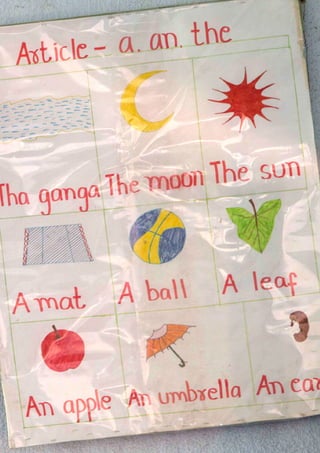 Article - a. an. the
Tha ganga The moon The sun
A mat A ball A leaf
An apple An umbrella An ear